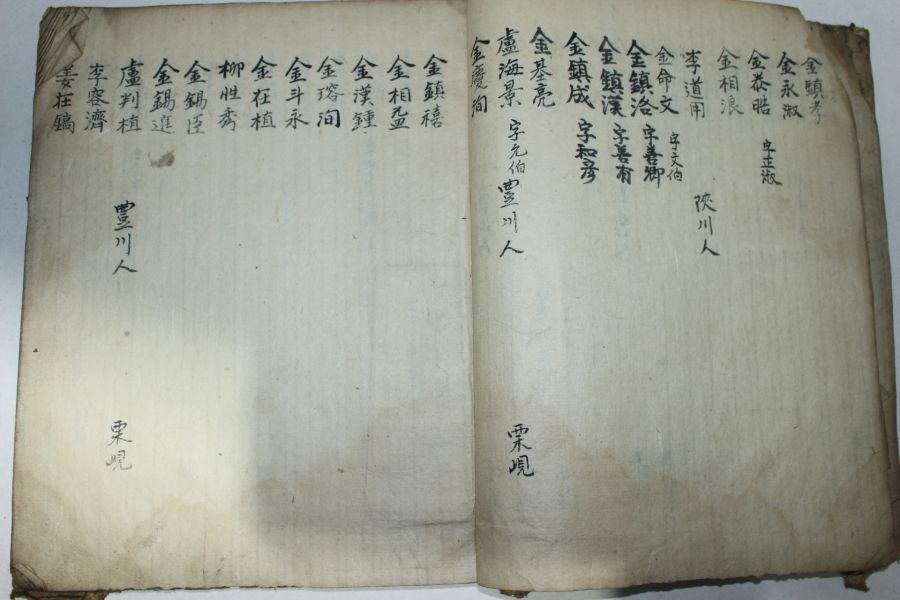 金顯孝
金永淑
金泰晧 字立淑
金相浪
李道用 陜川人
金命文 字文伯
金鎮洛 字善卿
金鎮漢 字善有
金鎮成 字和彦
金基亮
盧海景 字允伯 豊川人 栗峴
金慶洵
金鎮禧
金相
金漢鍾
金瑢洵
金斗永
金在植
柳性秀
金錫臣
金錫進
盧判植 豊川人 栗峴
李容濟
姜在鎬